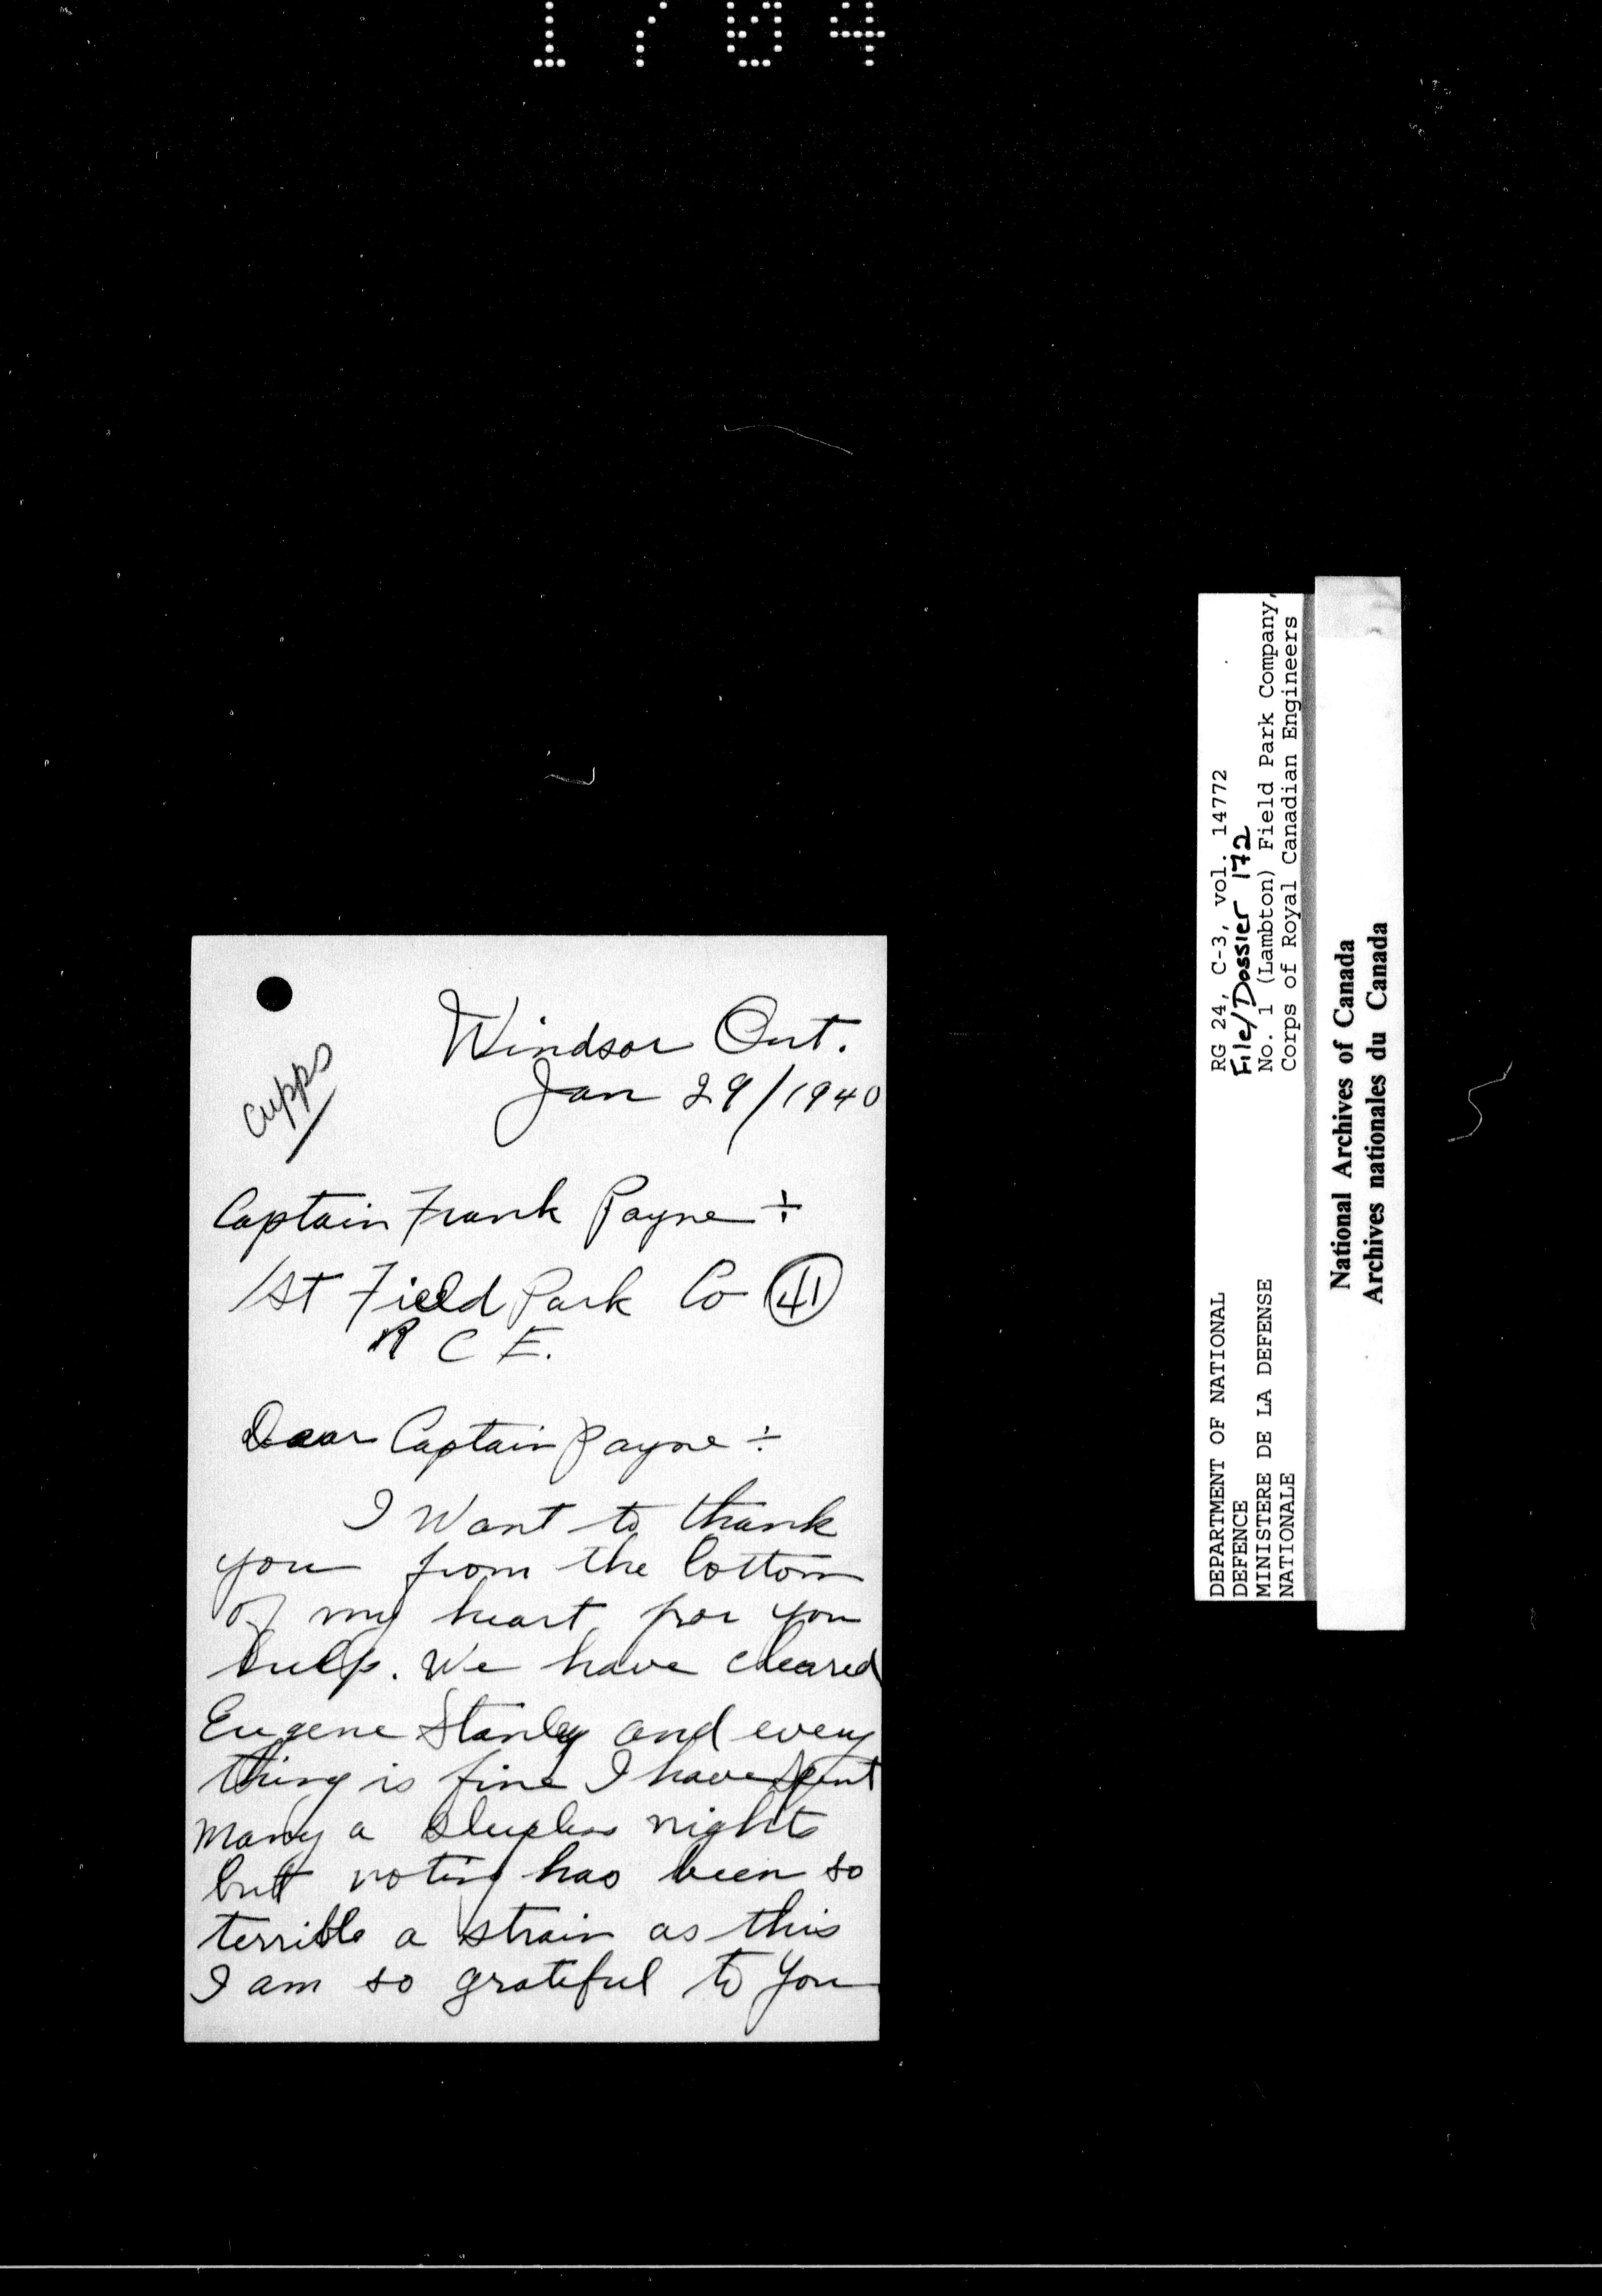 1704
Windsor Ont.
Jan 29/1940
Cupps
Captain Frank Payne ÷
1st Field Park Co 41
R C E.
Dear Captain Payne ÷
I Want to thank
you from the bottom
of my heart for you
help. We have cleared
Eugene Stanley and every
thing is fine I have spent
many a sleepless nights
but noting has been so
terrible a strain as this
I am so grateful to you
RG 24, C-3, vol. 14772
File/Dossier 172
No. 1 (Lambton) Field Park Company,
Corps of Royal Canadian Engineers
DEPARTMENT OF NATIONAL
DEFENCE
MINISTERE DE LA DEFENSE
NATIONALE
National Archives of Canada
Archives nationales du Canada